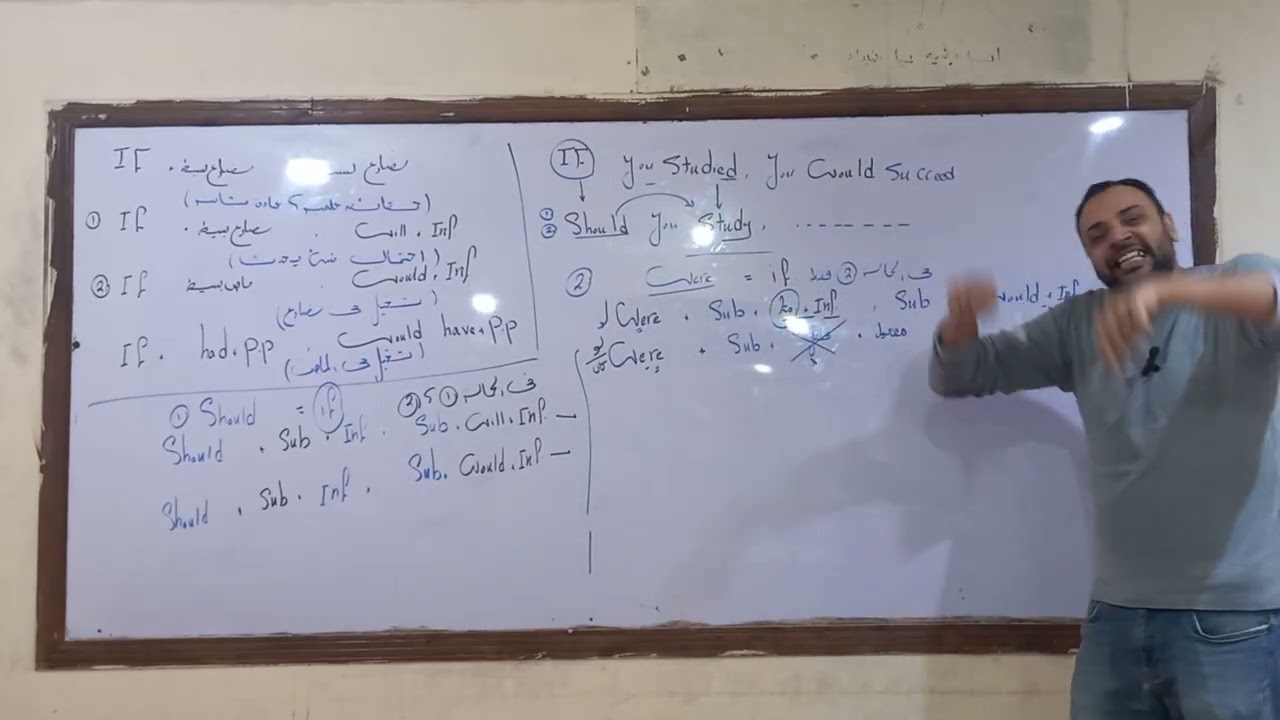 If مضارع بسيط . مضارع بسيط
① If مضارع بسيط . will + Inf
② If ماضى بسيط . would + Inf
(تخيل فى مضارع)
If + had + p.p would have + p.p
(تخيل فى الماضى)
① Should = if فى الحالة ① ؟ ②
Should + Sub + Inf . Sub. will + Inf. —
Should + Sub . Inf . Sub. would + Inf. —
If You Studied, You Would Succeed
① ② Should You Study, - - - - - - - -
② Were = if فى الحالة ② فقط
Were + Sub + to + Inf , Sub would + Inf
Were + Sub +